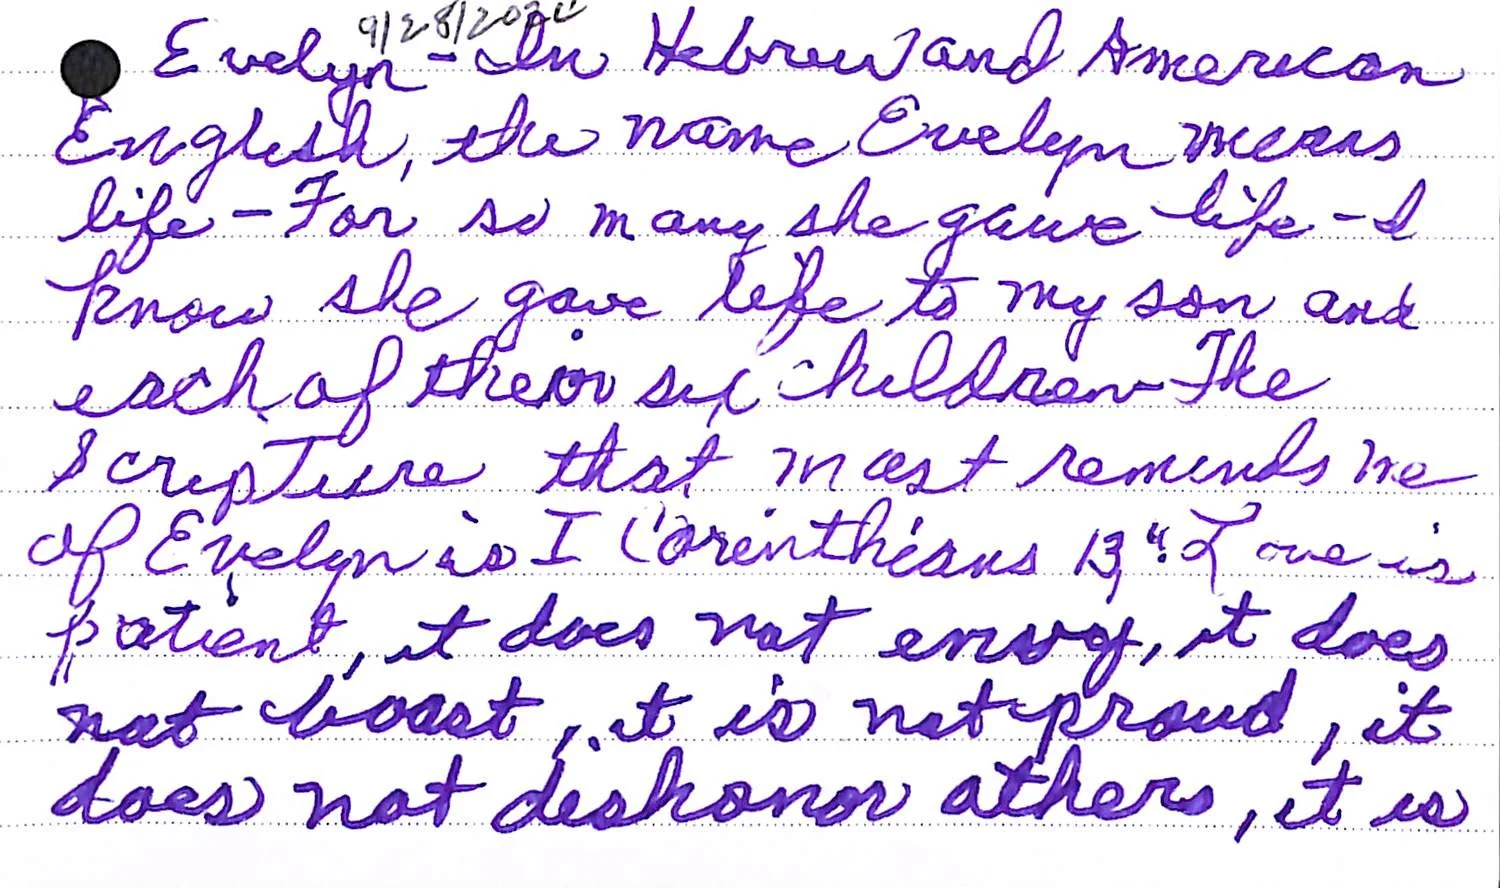 9/28/202
Evelyn - In Hebrew and American
English, the name Evelyn means
life - For so many she gave life - I
know she gave life to my son and
each of their six children - The
Scripture that most reminds me
of Evelyn is I Corinthians 13, "Love is
patient, it does not envy, it does
not boast, it is not proud, it
does not dishonor others, it is